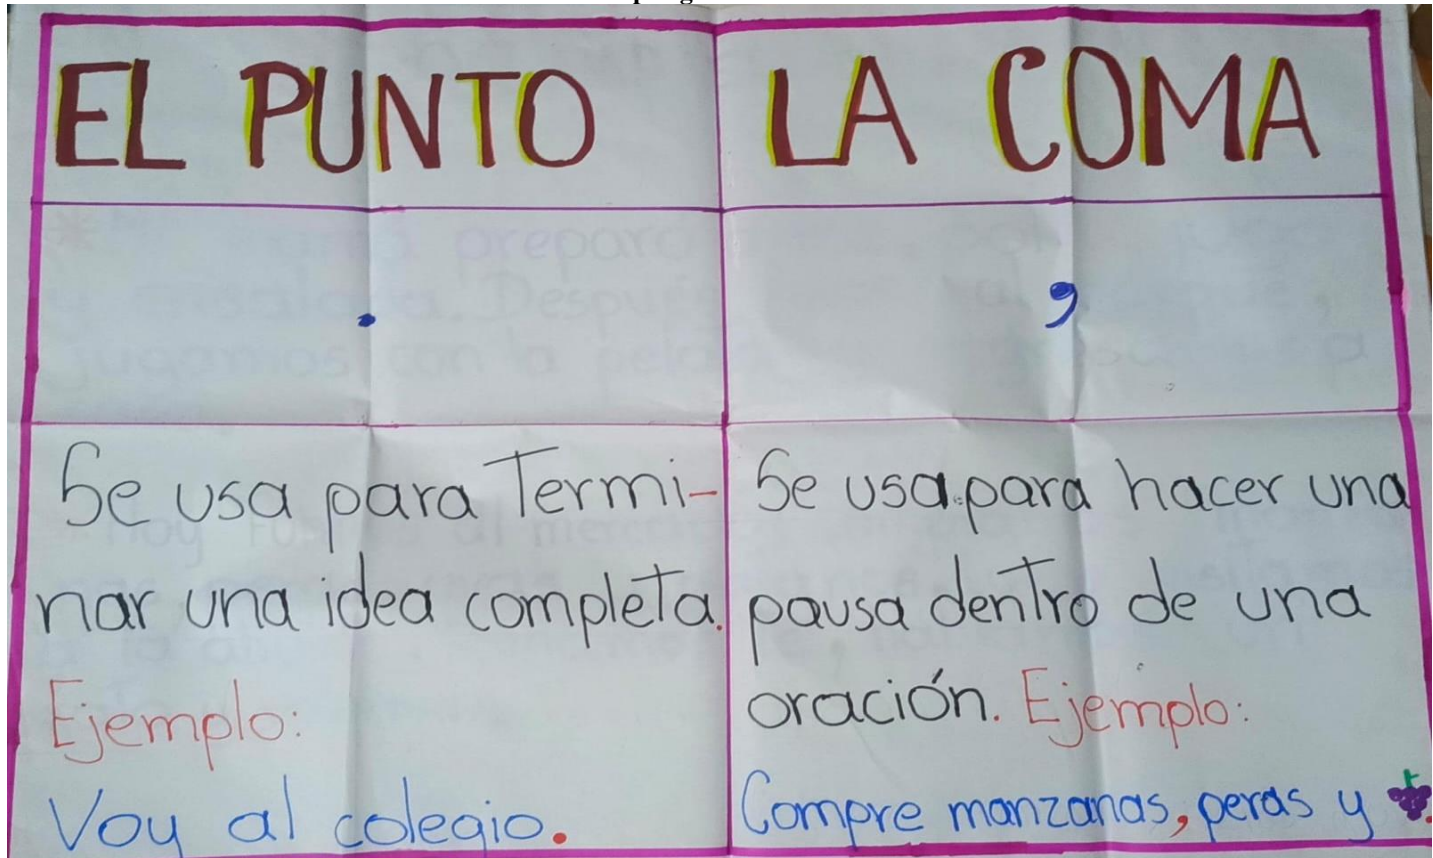 EL PUNTO
LA COMA
.
,
Se usa para Termi-
nar una idea completa.
Ejemplo:
Voy al colegio.
Se usa para hacer una
pausa dentro de una
oración. Ejemplo:
Compre manzanas, peras y .